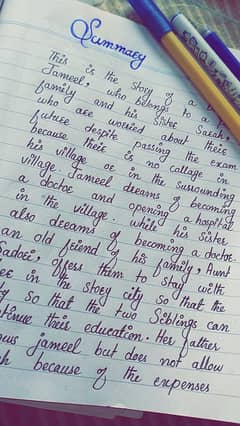 Summary
This is the story of a
Jameel, who belongs to a
family and his sister Sarah,
who are worried about their
future despite passing the exam
because their is no collage in
his village or in the surrounding
village. Jameel dreams of becoming
a doctor and opening a hospital
in the village. while his sister
also dreams of becoming a doctor.
an old friend of his family, Aunt
offers them to stay with
in the story city so that the
so that the two Siblings can
their education. Her father
jameel but does not allow
because of the expenses